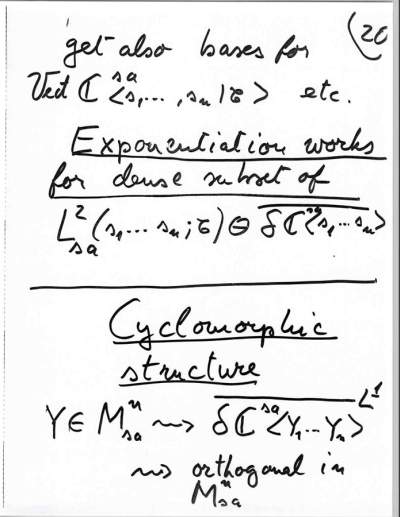 (20
get also bases for
Vect ℂ^sa⟨s₁,..., sₙ|τ⟩ etc.
Exponentiation works
for dense subset of
L²_sa(s₁...sₙ;τ)⊖δℂ^sa⟨s₁...sₙ⟩
Cyclomorphic
structure
Y∈M^n_sa ⇝ δℂ^sa⟨Y₁...Yₙ⟩^L¹
⇝ orthogonal in
M^n_sa